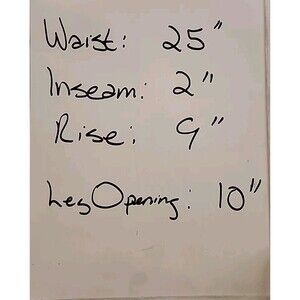 Waist: 25"
Inseam: 2"
Rise: 9"
Leg Opening: 10"